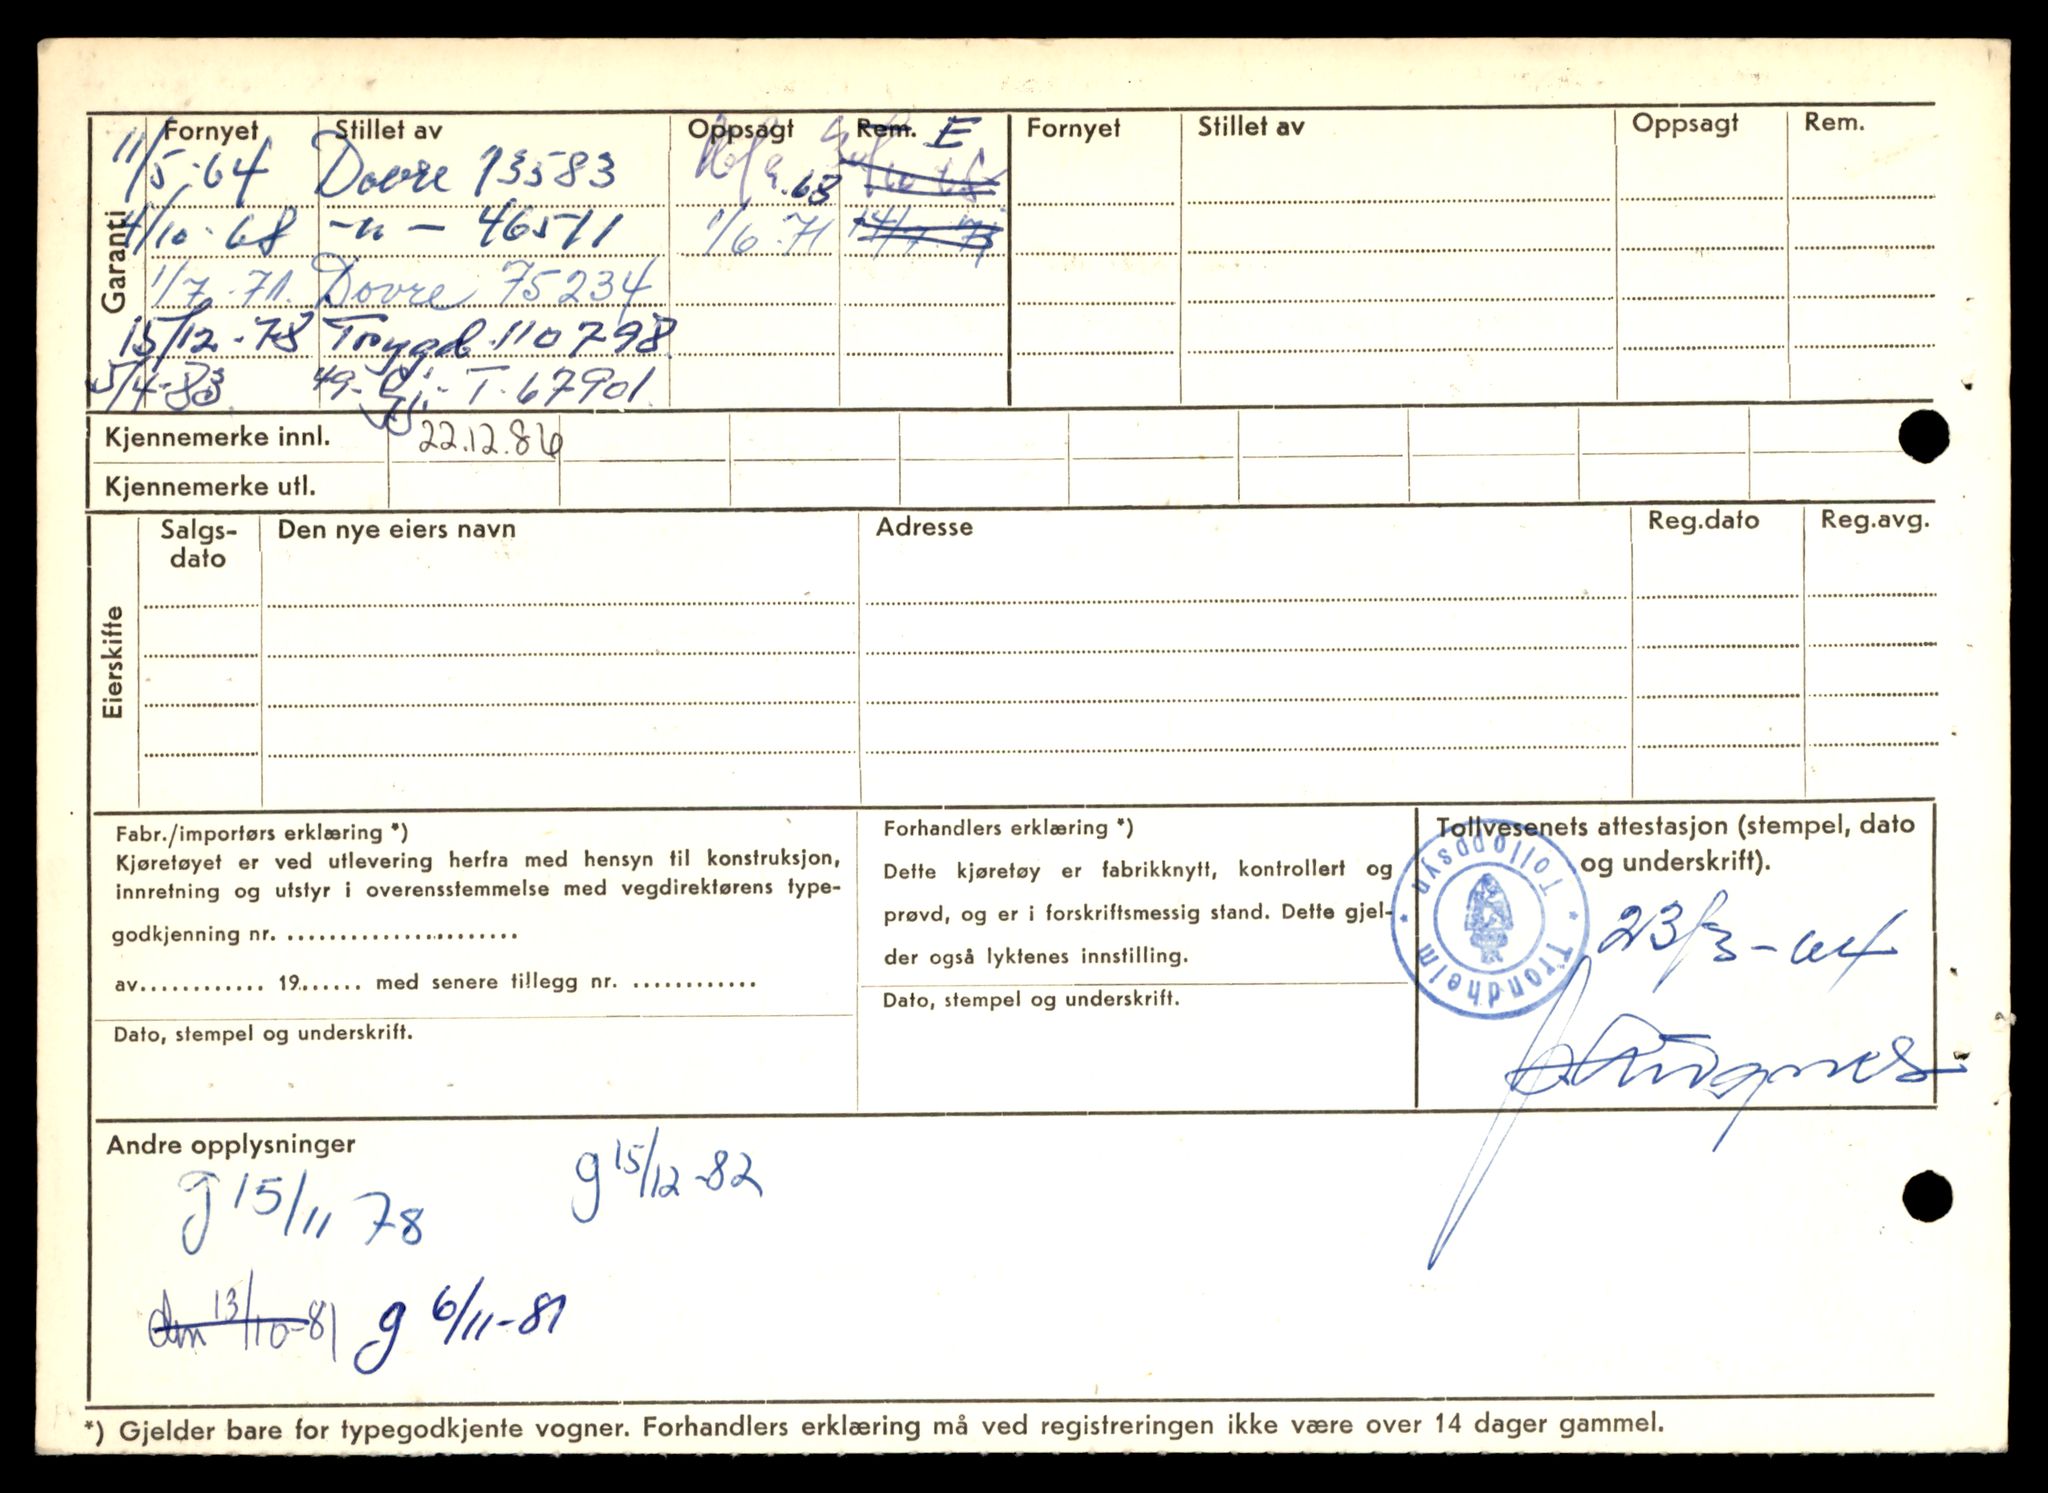 Garanti
Fornyet Stillet av Oppsagt Rem. E Fornyet Stillet av Oppsagt Rem.
11/5-64 Dovre 13583 68
4/10-68 -"- 46511 1/6-71
1/7-71. Dovre 75234
15/12-78 Trygd 110798
5/4-83 49- Gj.- T. 67901.
Kjennemerke innl. 22.12.86
Kjennemerke utl.
Eierskifte
Salgs-dato Den nye eiers navn Adresse Reg.dato Reg.avg.
Fabr./importørs erklæring *)
Kjøretøyet er ved utlevering herfra med hensyn til konstruksjon,
innretning og utstyr i overensstemmelse med vegdirektørens type-
godkjenning nr. ......................
av............ 19...... med senere tillegg nr. ............
Dato, stempel og underskrift.
Forhandlers erklæring *)
Dette kjøretøy er fabrikknytt, kontrollert og
prøvd, og er i forskriftsmessig stand. Dette gjel-
der også lyktenes innstilling.
Dato, stempel og underskrift.
Tollvesenets attestasjon (stempel, dato
og underskrift).
Trondheim * Tolloppsyn *
23/3-64
Andre opplysninger
g 15/11 78 g 15/12-82
13/10-81 g 6/11-81
*) Gjelder bare for typegodkjente vogner. Forhandlers erklæring må ved registreringen ikke være over 14 dager gammel.